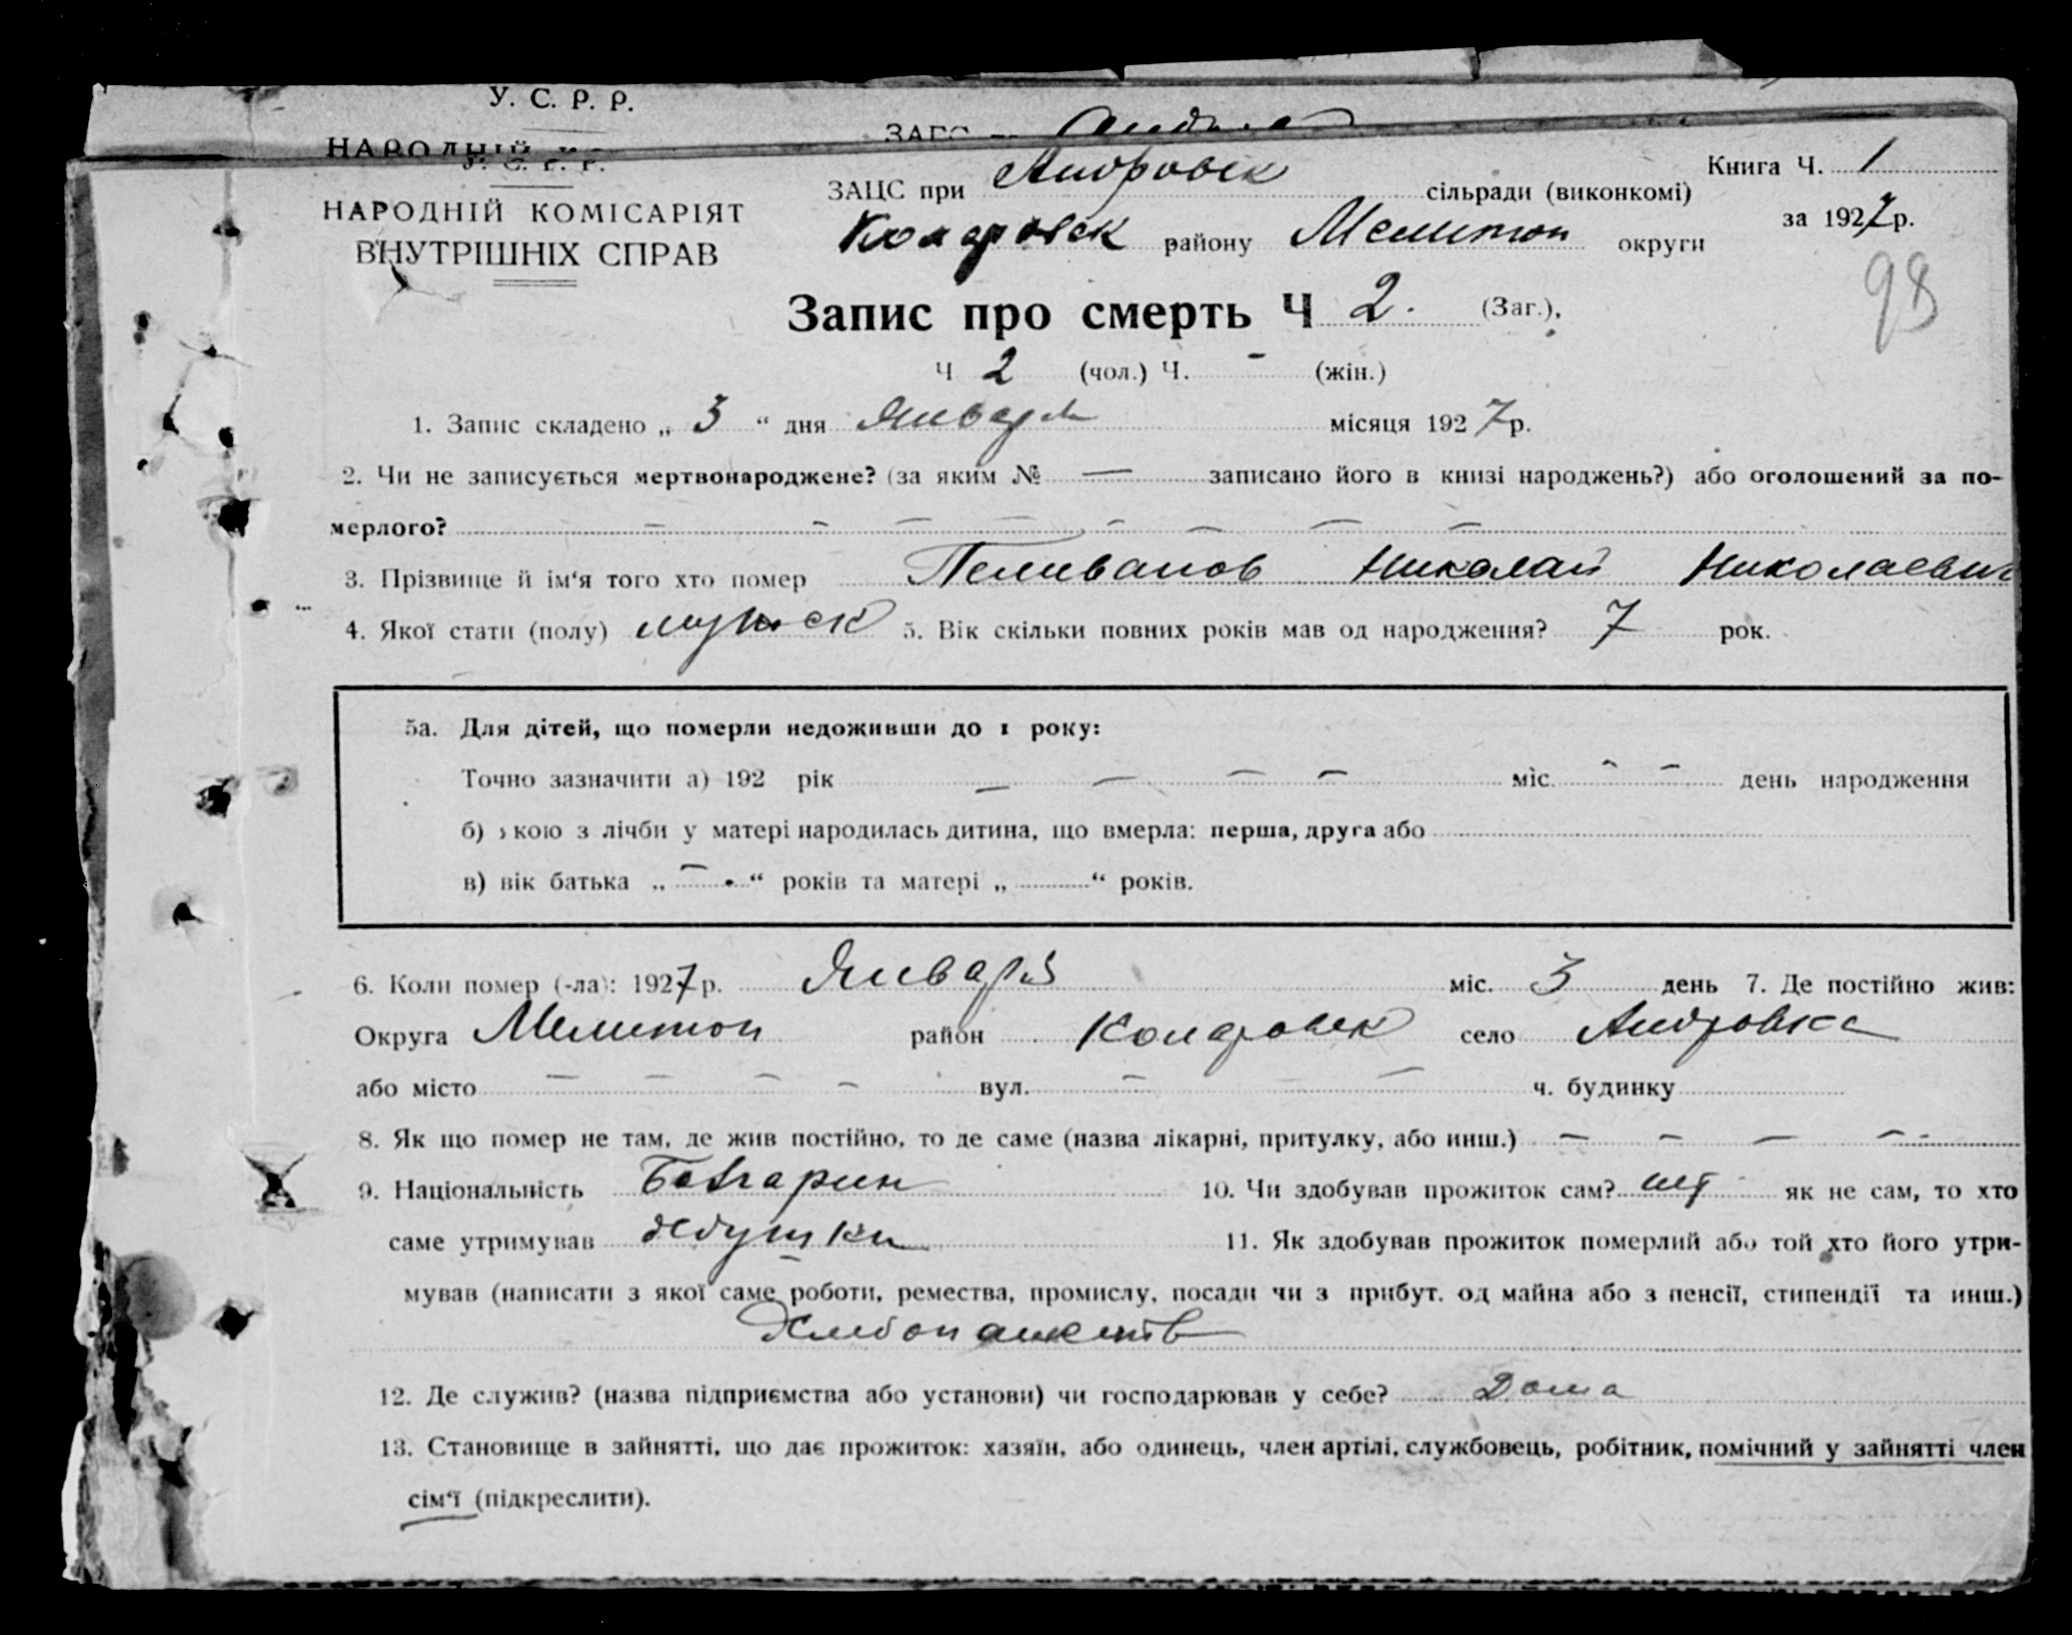 У. С. Р. Р.
НАРОДНІЙ
ЗАГС
У. С. Р. Р.
НАРОДНІЙ КОМІСАРІЯТ
ВНУТРІШНІХ СПРАВ
ЗАЦС при Андровск сільради (виконкомі)
Коларовск району Мелитоп округи
Книга Ч. 1
за 1927 р.
98
Запис про смерть Ч 2. (Заг.),
Ч 2 (чол.) Ч. - (жін.)
1. Запис складено „ 3 “ дня Января місяця 1927 р.
2. Чи не записується мертвонароджене? (за яким № — записано його в книзі народжень?) або оголошений за по-
мерлого? — — — — — — — —
3. Прізвище й ім‘я того хто помер Пеливанов Николай Николаевич
4. Якої стати (полу) мужск 5. Вік скільки повних років мав од народження? 7 рок.
5а. Для дітей, що померли недоживши до 1 року:
Точно зазначити а) 192 рік — — — — міс. - - день народження
б) якою з лічби у матері народилась дитина, що вмерла: перша, друга або
в) вік батька „ — “ років та матері „ “ років.
6. Коли помер (-ла): 1927 р. Января міс. 3 день 7. Де постійно жив:
Округа Мелитоп район Коларовск село Андровка
або місто — — — — вул. — — ч. будинку
8. Як що помер не там, де жив постійно, то де саме (назва лікарні, притулку, або инш.) — — — —
9. Національність Болгарин 10. Чи здобував прожиток сам? нет як не сам, то хто
саме утримував дедушка 11. Як здобував прожиток померлий або той хто його утри-
мував (написати з якої саме роботи, ремества, промислу, посади чи з прибут. од майна або з пенсії, стипендії та инш.)
Хлебопашеств
12. Де служив? (назва підприємства або установи) чи господарював у себе? Дома
13. Становище в зайнятті, що дає прожиток: хазяїн, або одинець, член артілі, службовець, робітник, помічний у зайнятті член
сім‘ї (підкреслити).